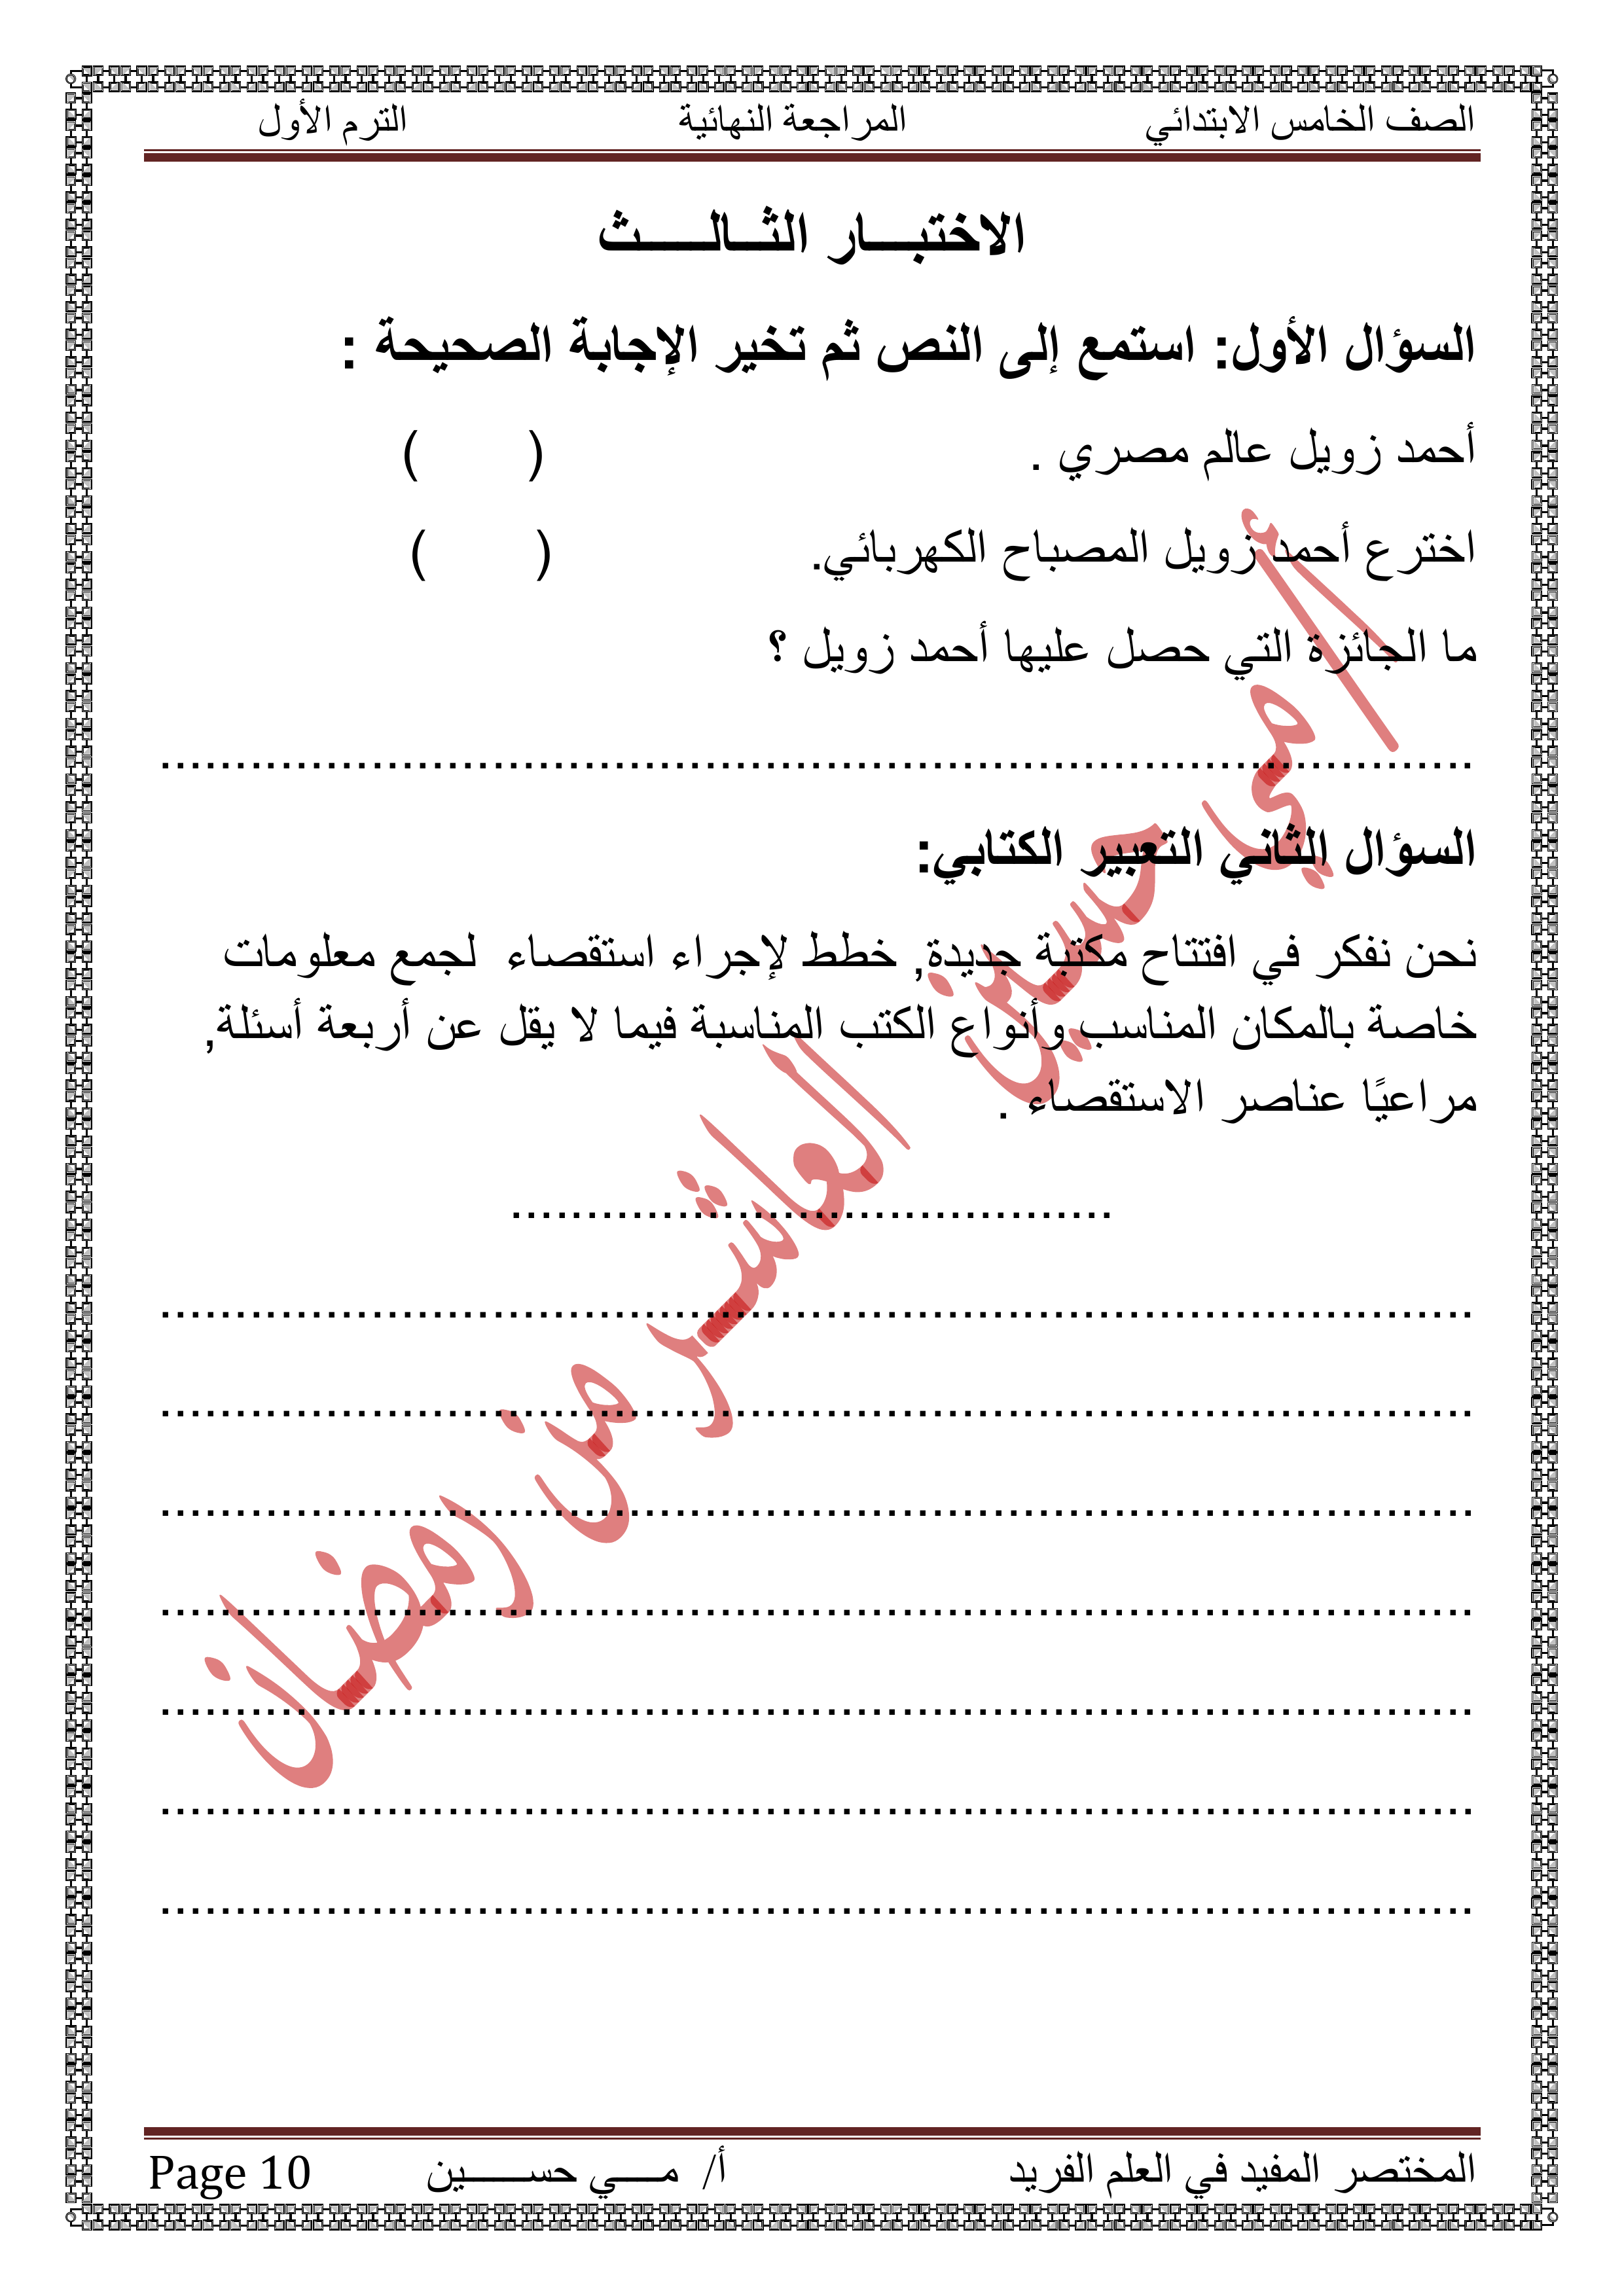 الصف الخامس الابتدائي المراجعة النهائية الترم الأول
الاختبـــار الثــالـــــث
السؤال الأول: استمع إلى النص ثم تخير الإجابة الصحيحة :
أحمد زويل عالم مصري . ( )
اخترع أحمد زويل المصباح الكهربائي. ( )
ما الجائزة التي حصل عليها أحمد زويل ؟
السؤال الثاني التعبير الكتابي:
نحن نفكر في افتتاح مكتبة جديدة, خطط لإجراء استقصاء لجمع معلومات
خاصة بالمكان المناسب وأنواع الكتب المناسبة فيما لا يقل عن أربعة أسئلة,
مراعيًا عناصر الاستقصاء .
أ/ مي حسين العاشر من رمضان
المختصر المفيد في العلم الفريد أ/ مــــي حســــــين Page 10